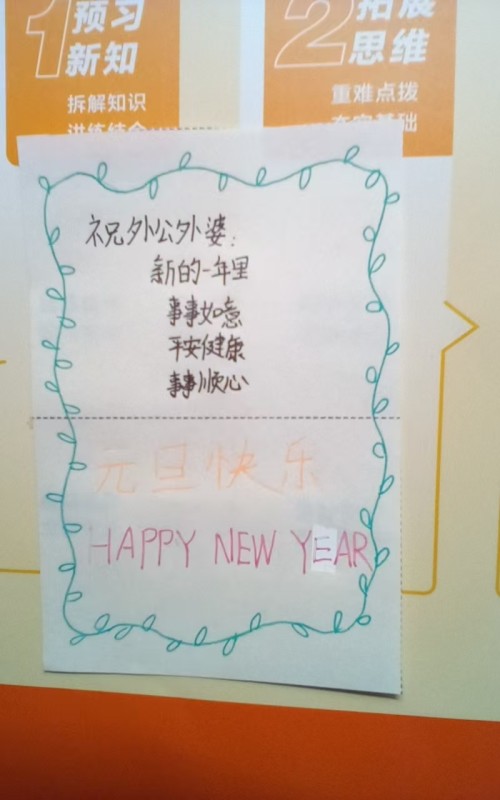 1 预习
新知
拆解知识
讲练结合
2 拓展
思维
重难点拨
夯实基础
祝外公外婆:
新的一年里
事事如意
平安健康
事事顺心
元旦快乐
HAPPY NEW YEAR